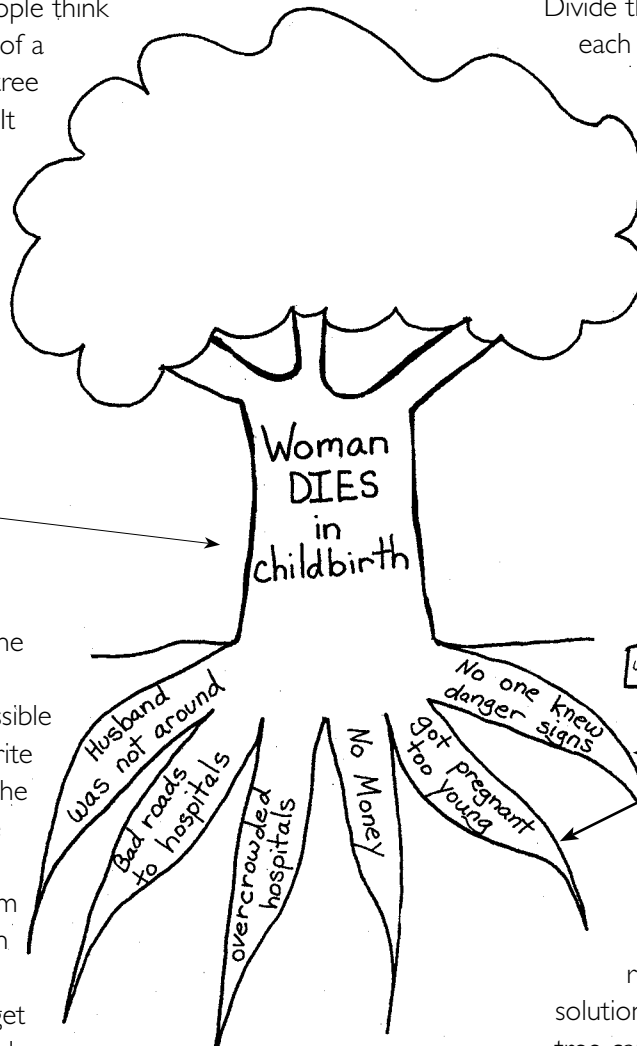 ople think
of a
tree
It
Divide th
each
Woman
DIES
in
childbirth
ne
ssible
rite
he
m
n
get
Husband
was not around
Bad roads
to hospitals
overcrowded
hospitals
No Money
got pregnant
too young
No one knew
danger signs
solution